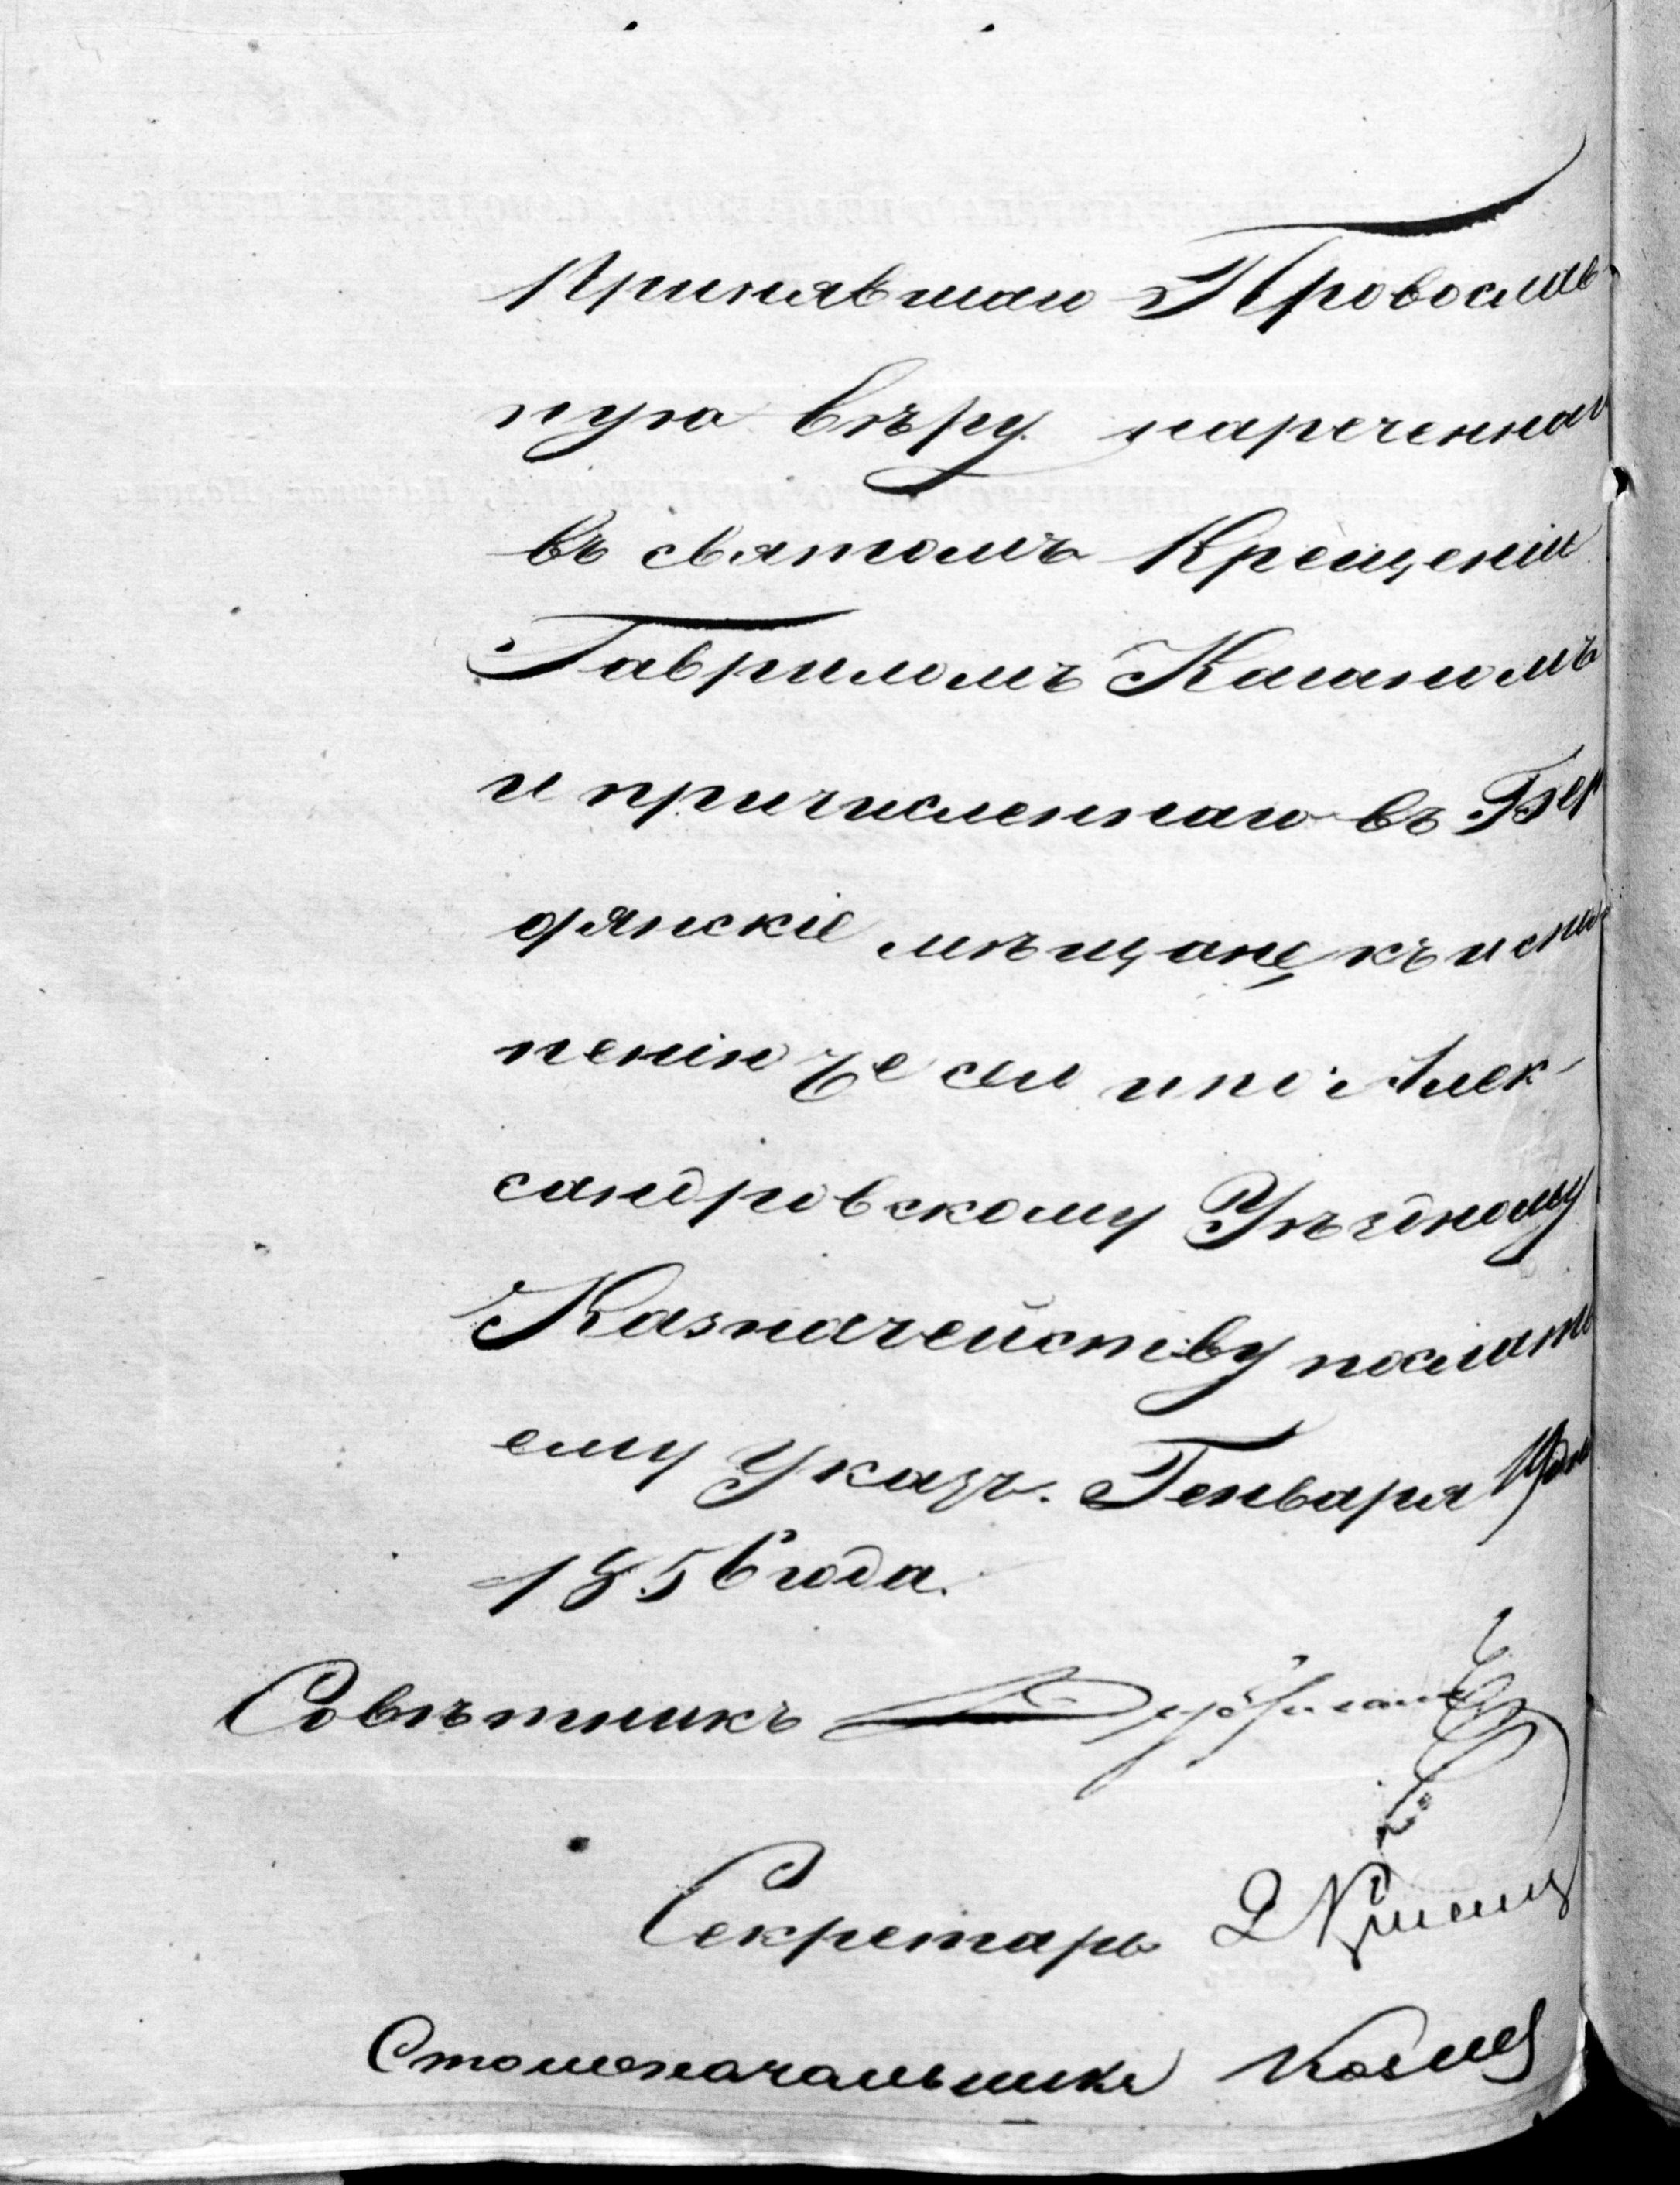 принявшаго Провослав
ную вѣру нареченнаго
въ святомъ Крещеніи
Гавриломъ Каганомъ
и причисленнаго въ Бер
дянскіе мѣщане, къ испол
ненію чего и по Алек-
сандровскому Уѣздному
Казначейству послать
ему Указъ. Генваря дня
1856 года.
Совѣтникъ
Секретарь
Столоначальникъ